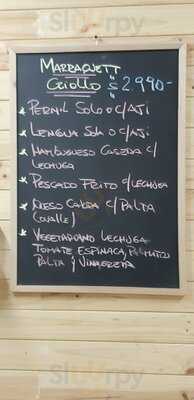 MARRAQUETT
CRIOLLO $2.990-
* PERNIL SOLO O C/AJI
* LENGUA SOLA O C/AJI
* HAMBURGUESO CASERA C/
LECHUGA
* PESCADO FRITO C/LECHUGA
* QUESO CABRA C/ PALTA
(OVALLE)
* VEGETARIANO LECHUGA
TOMATE ESPINACA,
PALTA Y VINAGRETA
Sluurpy
Sluurpy